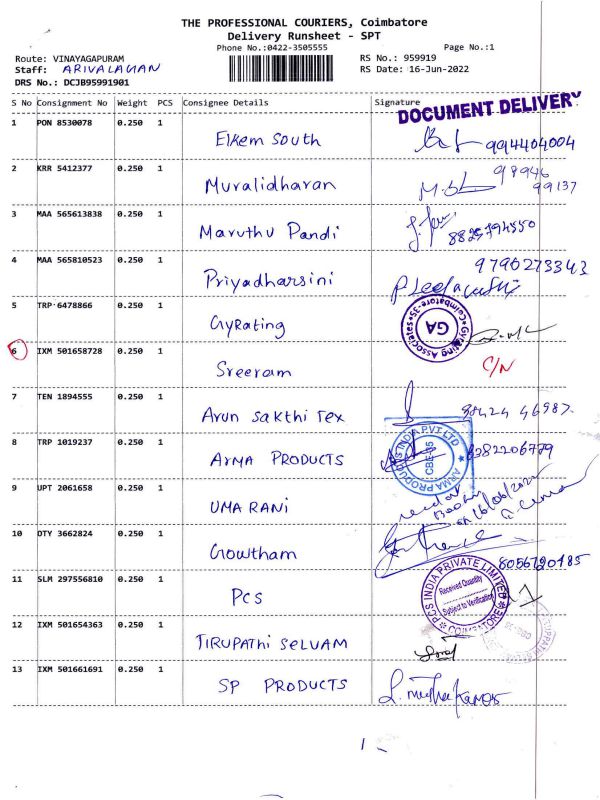 THE PROFESSIONAL COURIERS, Coimbatore
Delivery Runsheet - SPT
Phone No.:0422-3505555 Page No.:1
Route: VINAYAGAPURAM RS No.: 959919
Staff: ARIVALAGAN RS Date: 16-Jun-2022
DRS No.: DCJB95991901
S No Consignment No Weight PCS Consignee Details Signature
DOCUMENT DELIVERY
1 PON 8530078 0.250 1 Elkem South 994404004
2 KRR 5412377 0.250 1 Muralidharan 98946
99137
3 MAA 565613838 0.250 1 Maruthu Pandi
4 MAA 565810523 0.250 1 Priyadharsini 9790273343
5 TRP 6478866 0.250 1 GyRating
Gyrating Associates Coimbatore-35 GA
6 IXM 501658728 0.250 1 Sreeram C/N
7 TEN 1894555 0.250 1 Arun Sakthi Tex 98424 46987
8 TRP 1019237 0.250 1 ARMA PRODUCTS 8282206779
ARMA PRODUCTS INDIA PVT LTD CBE-35
9 UPT 2061658 0.250 1 UMA RANI
10 DTY 3662824 0.250 1 Gowtham
8056720185
11 SLM 297556810 0.250 1 Pcs
PCS INDIA PRIVATE LIMITED COIMBATORE
Received Quantity
Subject to Verification
12 IXM 501654363 0.250 1 TIRUPAThi SELVAM
13 IXM 501661691 0.250 1 SP PRODUCTS